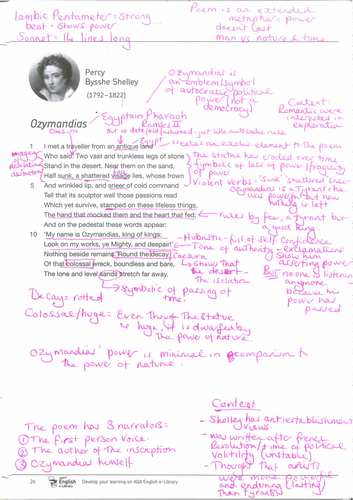 Iambic Pentameter = strong
beat - shows power
Sonnet = 14 lines long
Poem is an extended
metaphor = power
doesn't last
man vs nature & time
Percy
Bysshe Shelley
(1792–1822)
Ozymandias is
an emblem/symbol
of autocratic political
power (not a
democracy)
Context:
Romantics were
interested in
exploration
Ozymandias
Egyptian Pharaoh
Ramses II
Caesura
out of date/old fashioned - just like autocratic rule
Egypt
creates an exotic element to the poem
1 I met a traveller from an antique land
Who said: Two vast and trunkless legs of stone
Stand in the desert. Near them on the sand,
Half sunk, a shattered visage lies, whose frown
5 And wrinkled lip, and sneer of cold command
Tell that its sculptor well those passions read
Which yet survive, stamped on these lifeless things,
The hand that mocked them and the heart that fed;
And on the pedestal these words appear:
10 'My name is Ozymandias, king of kings:
Look on my works, ye Mighty, and despair!'
Nothing beside remains. Round the decay
Of that colossal wreck, boundless and bare,
The lone and level sands stretch far away.
The statue has eroded over time
Symbolic of loss of power (fragility
of power)
Violent verbs: "Sunk" "Shattered"
Ozymandias is a Tyrant who
was powerful but now
nothing is left
rules by fear, a tyrant but
a good king
Hubristic - full of self confidence
Tone of authority - exclamations
Show him
asserting power
But no one is listening
anymore
because his
power has
passed
Caesura
shows that
the desert -
the isolation
symbolic of passing of
time.
Decay = rotted
Colossal/huge = Even though the statue
is huge, it is dwarfed by
the power of nature.
Ozymandias' power is minimal in comparison to
the power of nature.
The poem has 3 narrators:
① The first person voice
② The author of the inscription
③ Ozymandias himself
Context
- Shelley has antiestablishment
views.
- was written after french
Revolution/time of political
Volitility (unstable)
- Thought that artists
were more powerful
and enduring (lasting)
than tyrants
26
English
e-Library
Develop your learning on AQA English e-Library